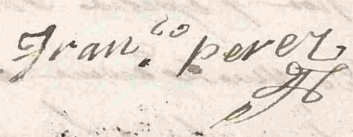 Fran.co perez